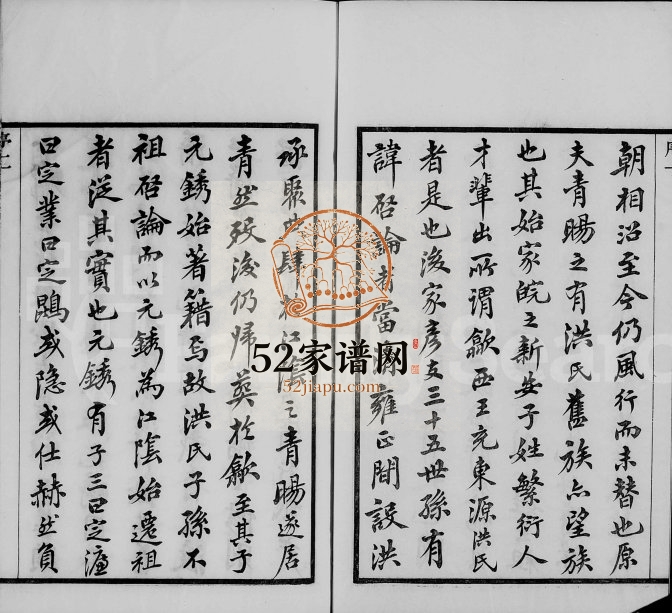 朝相沿至今仍風行而未替也原
夫青暘之有洪氏舊族亦望族
也其始家皖之新安子姓繁衍人
才輩出所謂歙西王充東源洪氏
者是也後家彥支三十五世孫有
諱啓論者當雍正間設洪
承聚肆江陰之青暘遂居
青然歿後仍歸葬於歙至其子
元銹始著籍焉故洪氏子孫不
祖啓論而以元銹為江陰始遷祖
者從其實也元銹有子三曰定濂
曰定業曰定鶚或隱或仕赫然負
52家谱网
52jiapu.com